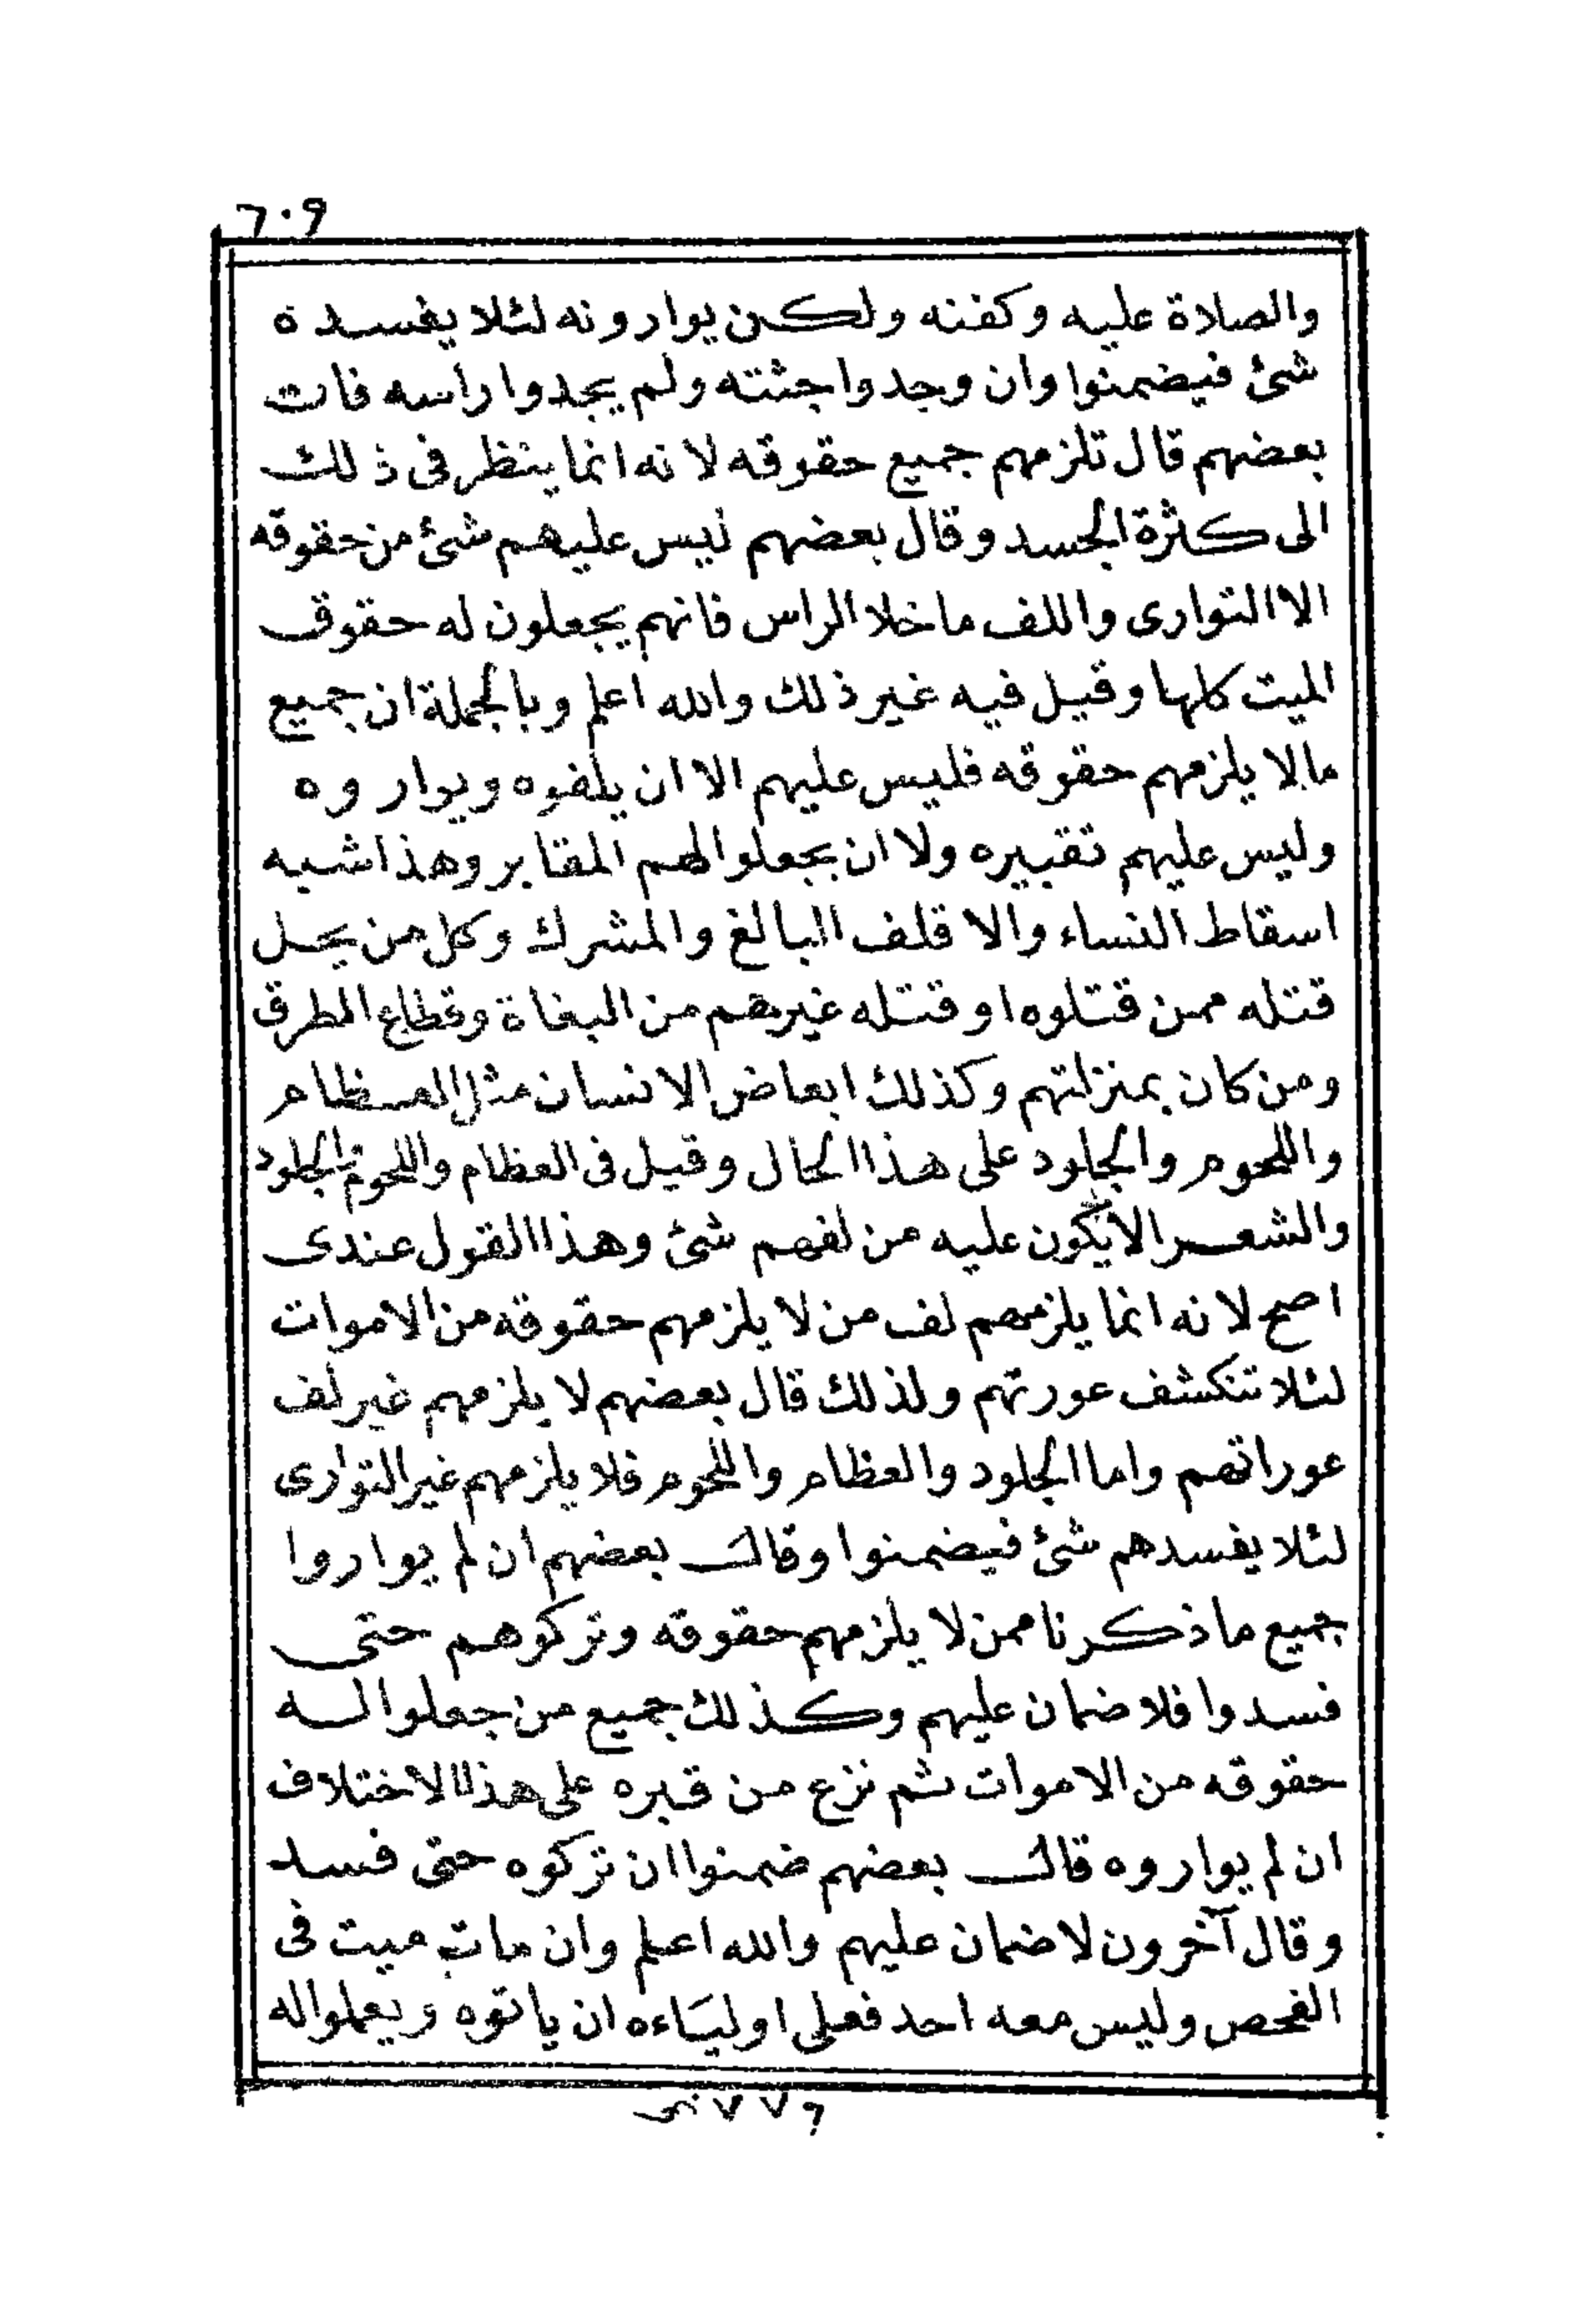 ٦٠٩
والصلاة عليه وكفنه ولكن يوارونه لئلا يفسده
شئ فيضمنوا وان وجدوا جثته ولم يجدوا راسه فان
بعضهم قال تلزمهم جميع حقوقه لانه انما ينظر فى ذلك
الى كثرة الجسد وقال بعضهم ليس عليهم شئ من حقوقه
الا التوارى واللف ما خلا الراس فانهم يجعلون له حقوق
الميت كلها وقيل فيه غير ذلك والله اعلم وبالجملة ان جميع
ما لا يلزمهم حقوقه فليس عليهم الا ان يلفوه ويواروه
وليس عليهم تقبيره ولا ان يجعلوا لهم المقابر وهذا شبه
اسقاط النساء والاقلف البالغ والمشرك وكل من يحل
قتله ممن قتلوه او قتله غيرهم من البغاة وقطاع الطرق
ومن كان بمنزلتهم وكذلك ابعاض الانسان مثل العظام
واللحوم والجلود على هذا الحال وقيل فى العظام واللحوم والجلود
والشعر لا يكون عليه من لفهم شئ وهذا القول عندى
اصح لانه انما يلزمهم لف من لا يلزمهم حقوقه من الاموات
لئلا تنكشف عورتهم ولذلك قال بعضهم لا يلزمهم غير لف
عوراتهم واما الجلود والعظام واللحوم فلا يلزمهم غير التوارى
لئلا يفسدهم شئ فيضمنوا وقال بعضهم ان لم يواروا
جميع ما ذكرنا ممن لا يلزمهم حقوقه وتركوهم حتى
فسدوا فلا ضمان عليهم وكذلك جميع من جعلوا له
حقوقه من الاموات ثم نزع من قبره على هذا الاختلاف
ان لم يواروه قال بعضهم ضمنوا ان تركوه حتى فسد
وقال آخرون لا ضمان عليهم والله اعلم وان مات ميت فى
الفحص وليس معه احد فعلى اولياءه ان ياتوه ويعملوا له